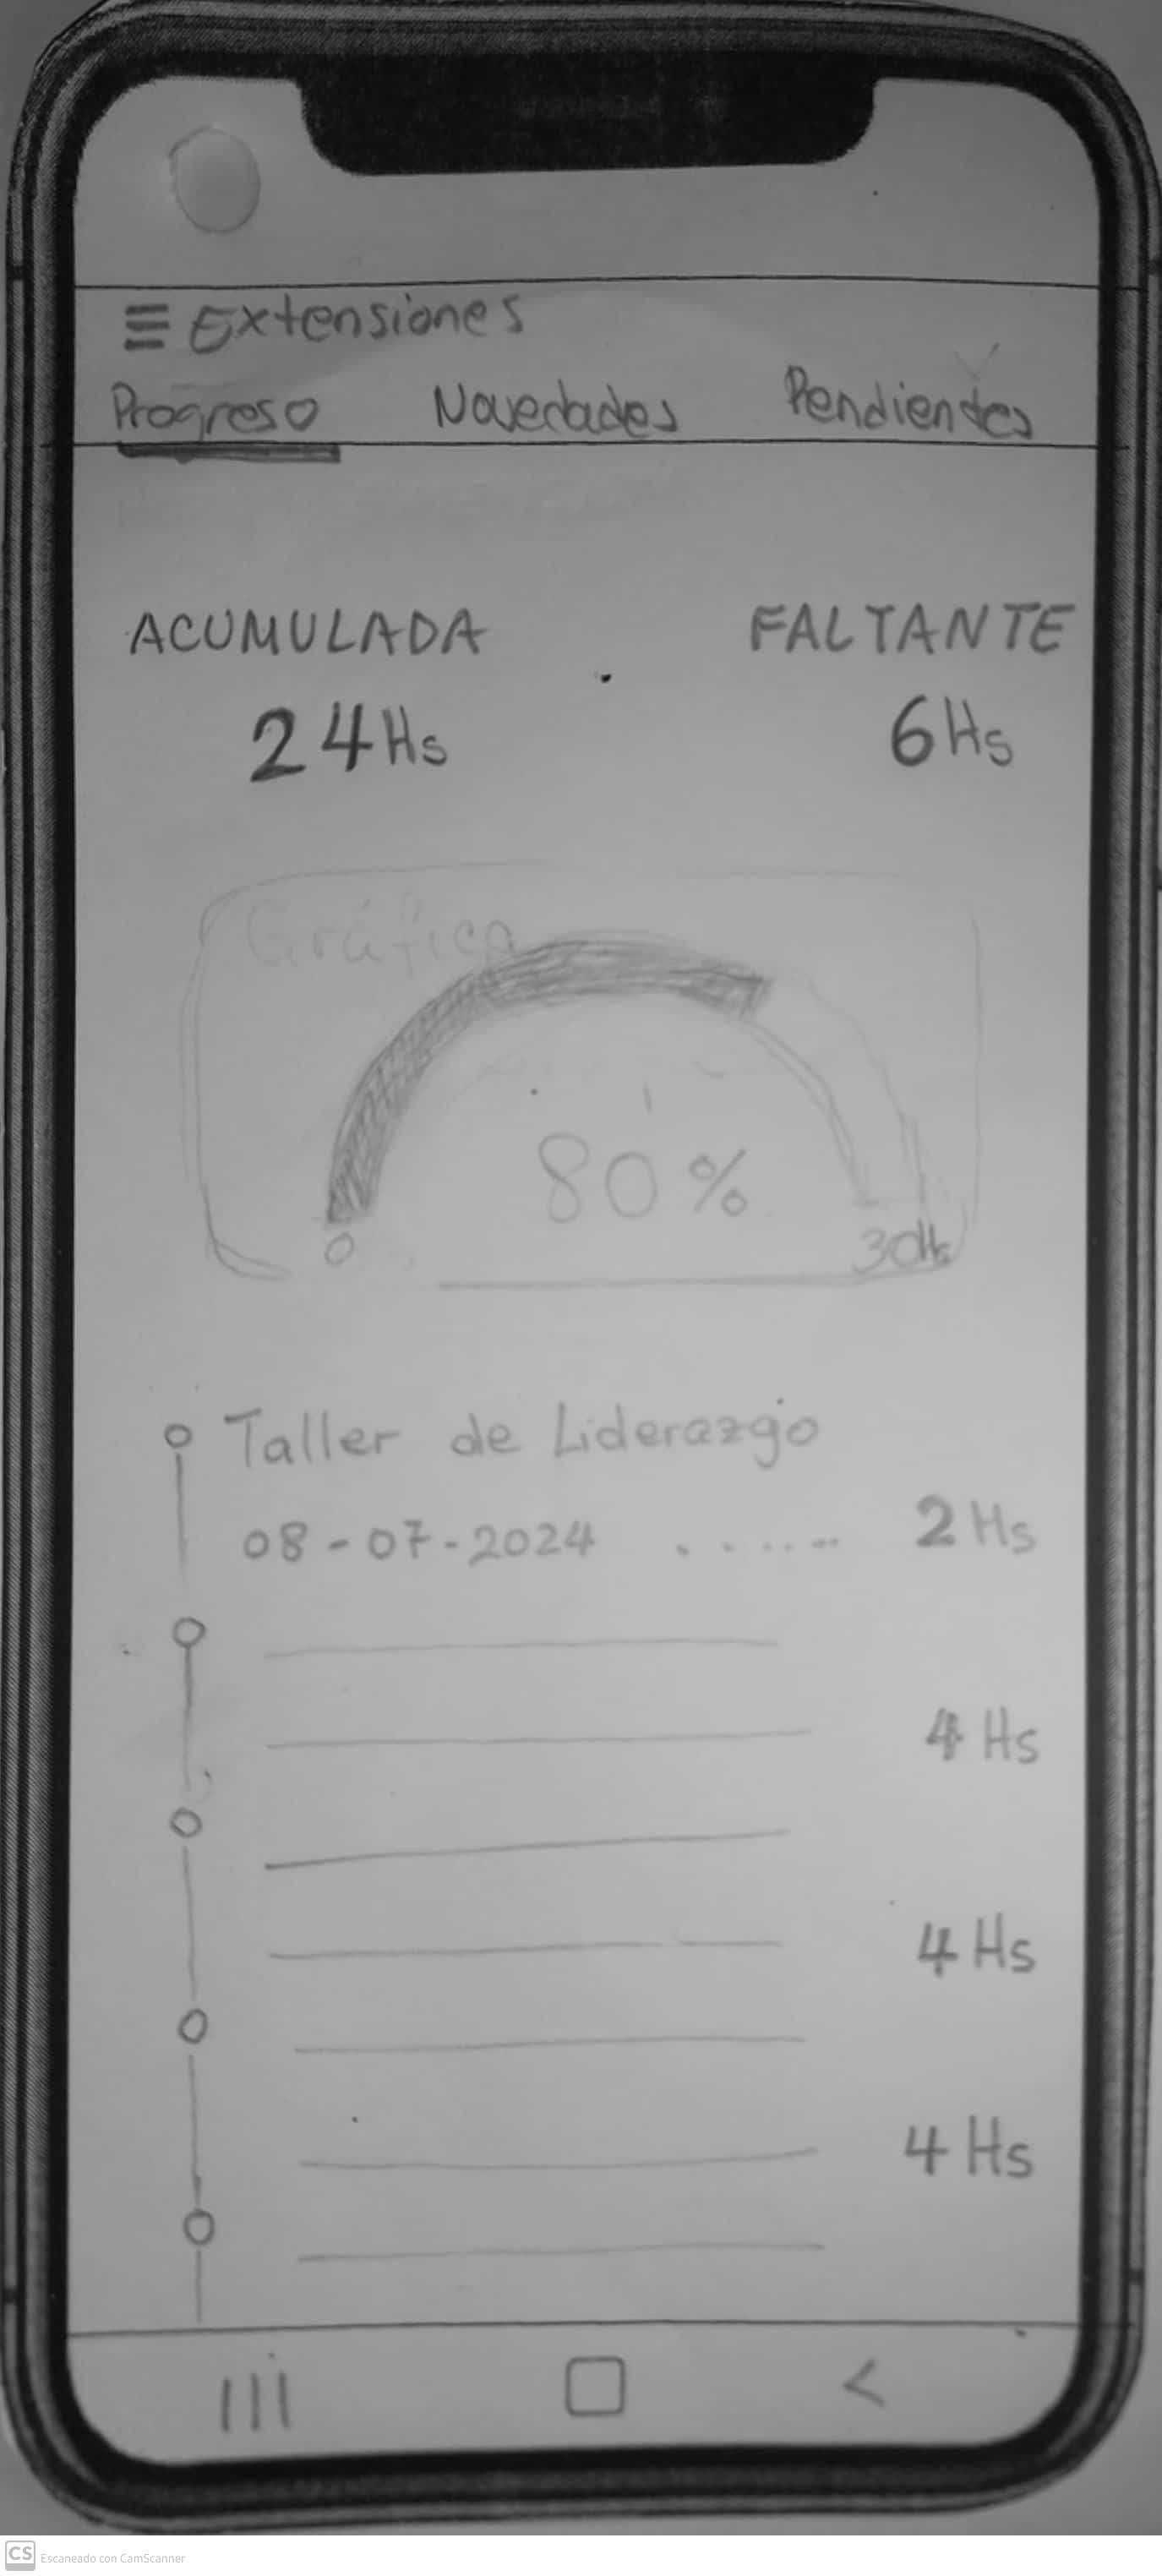 Extensiones
Progreso Novedades Pendientes
ACUMULADA FALTANTE
24Hs 6Hs
Gráfica
80%
0 30Hs
Taller de Liderazgo
08-07-2024 ....... 2 Hs
4 Hs
4 Hs
4 Hs
CS Escaneado con CamScanner